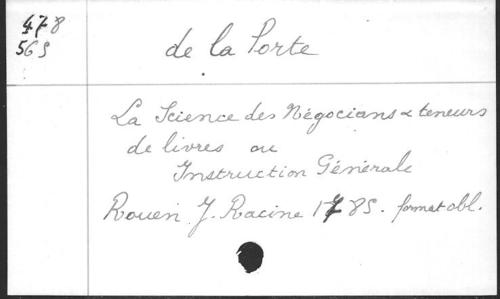 478
565
de la Porte
La Science des Négocians & teneurs
de livres ou
Instruction Générale
Rouen J. Racine 1785. format obl.